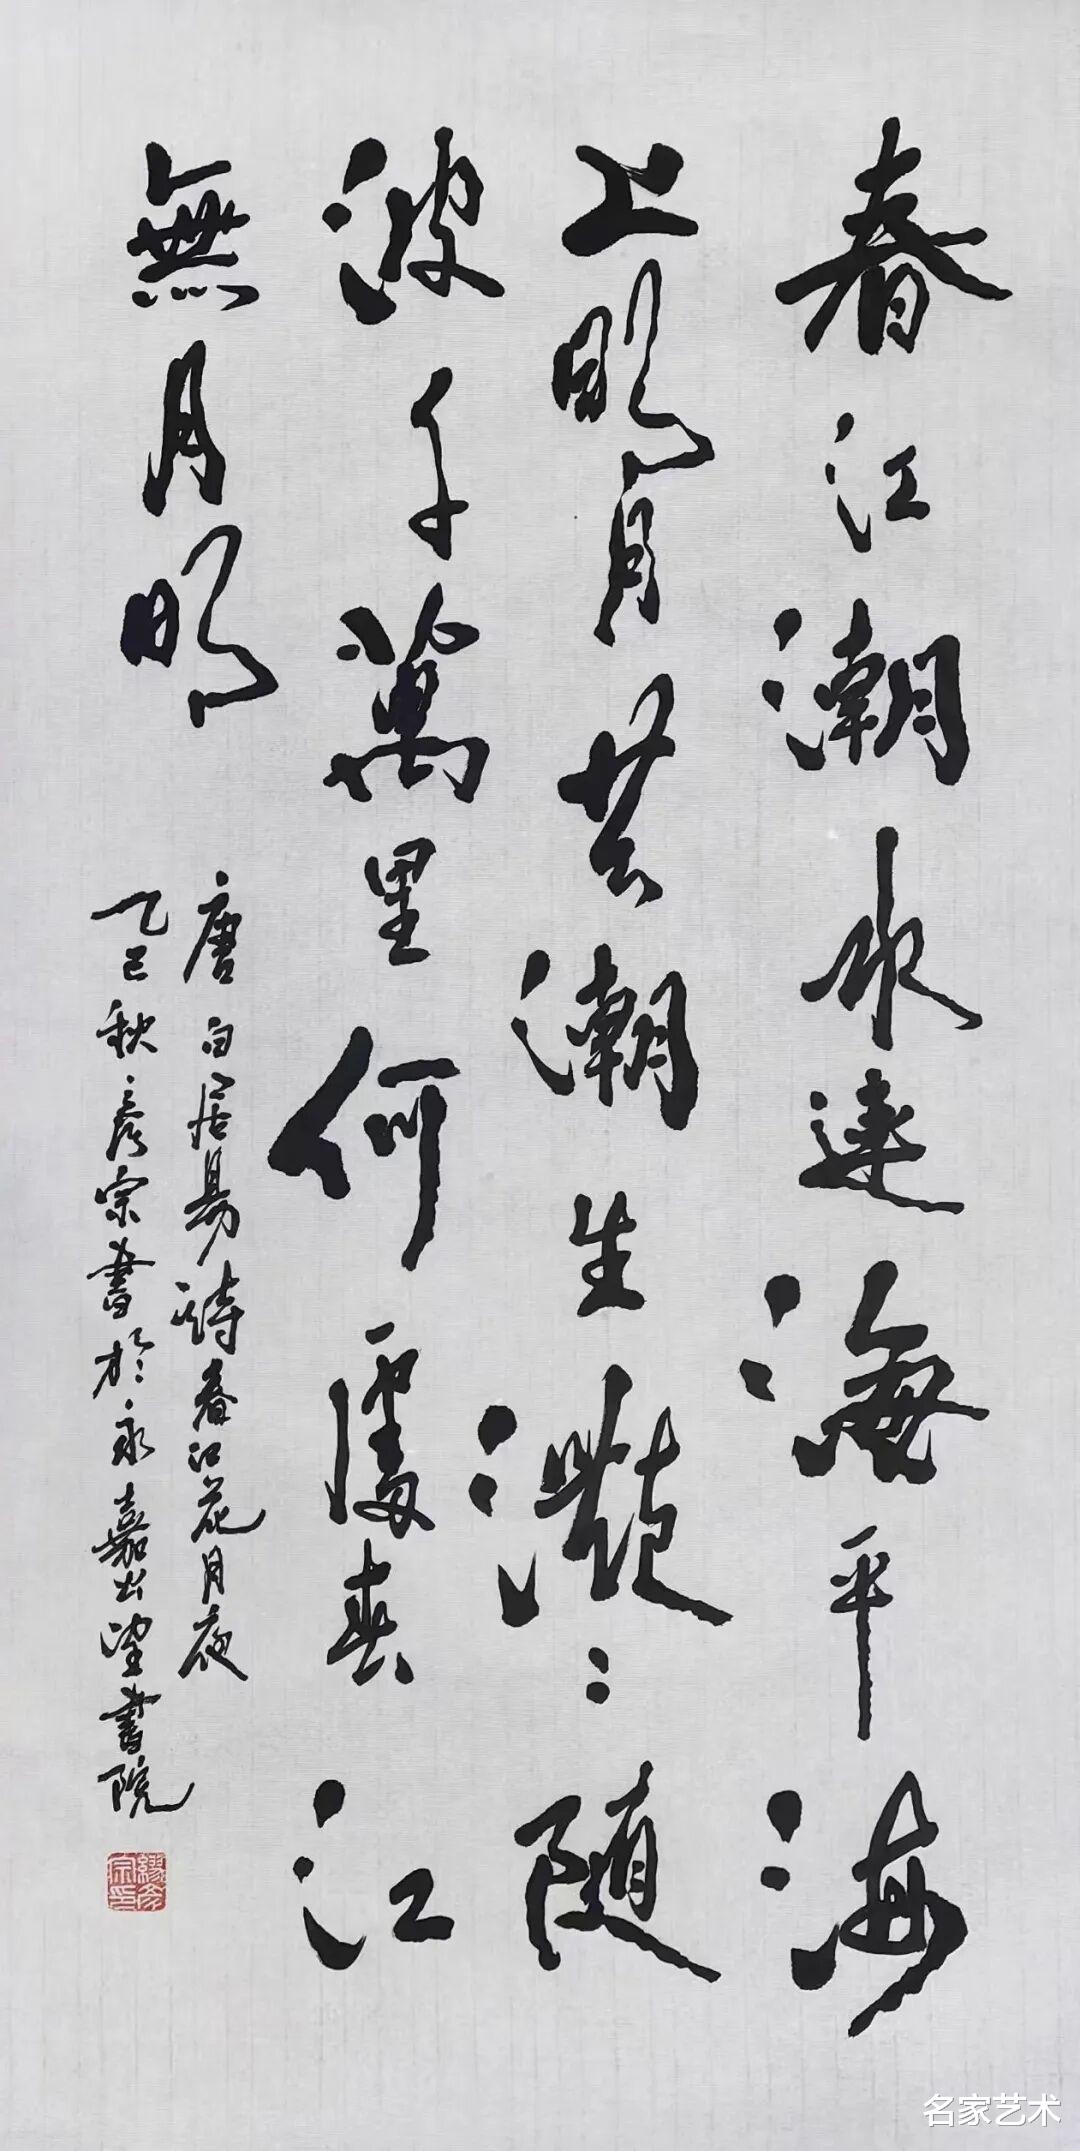 春江潮水連海平海
上明月共潮生灩〻隨
波千萬里何處春江
無月明
唐白居易詩春江花月夜
乙巳秋彦宗書於永嘉出望書院
繆彦宗印
名家艺术